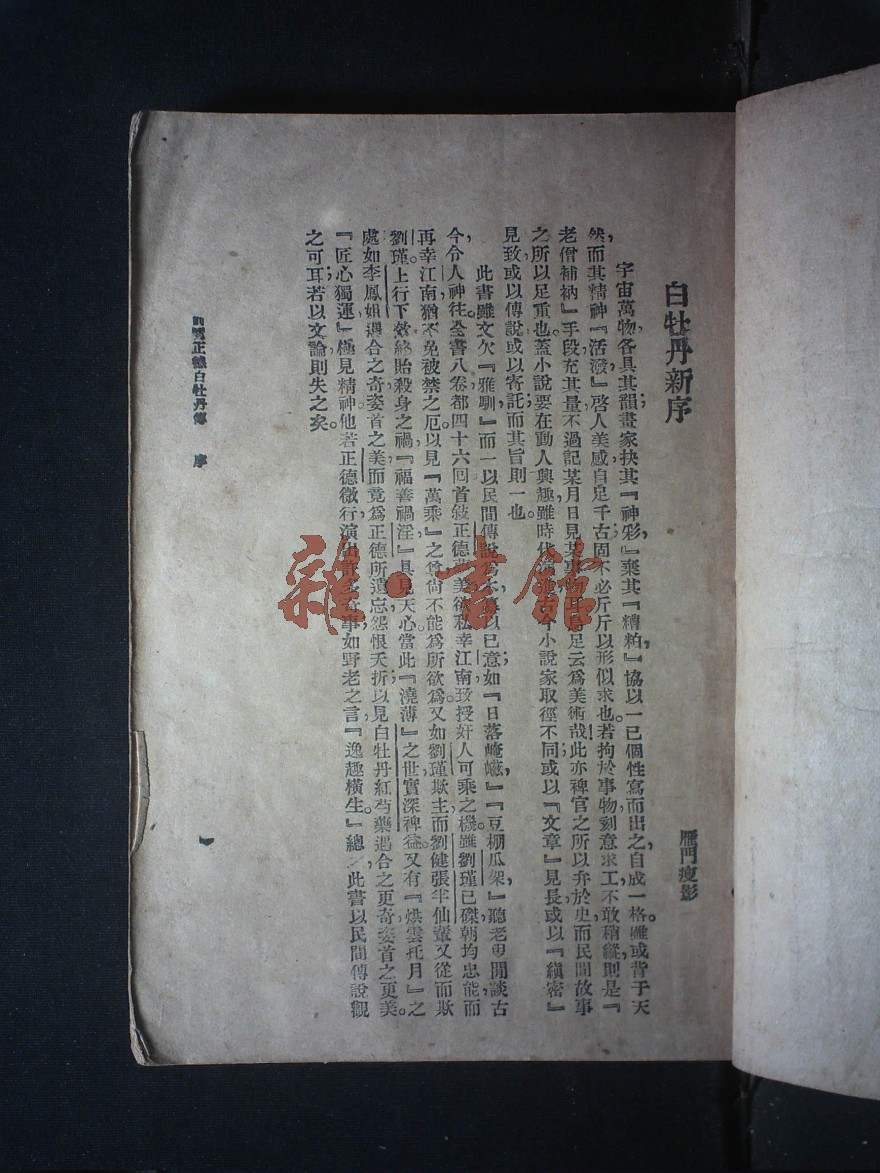 白牡丹新序
雁門瘦影
宇宙萬物，各具其韻，畫家抉其『神彩』棄其『糟粕，』協以一己個性，寫而出之，自成一格。雖或背于天
然，而其精神『活潑』啓人美感，自足千古；固不必斤斤以形似求也。若拘於事物，刻意求工，不敢稍縱，則是『
老僧補衲』手段，充其量不過記某月日見某事物耳，烏足云爲美術哉！此亦稗官之所以弁於史，而民間故事
之所以足重也。蓋小說要在動人興趣，雖時代古今，小說家取徑不同，或以『文章』見長，或以『縝密』
見致，或以傳說，或以寄託，而其旨則一也。
此書雖文欠『雅馴，』而一以民間傳說爲本，以己意，如『日落崦嵫，』『豆棚瓜架，』聽老閒談古
今，令人神往。全書八卷，都四十六回，首敍正德美，欲私幸江南，致授奸人可乘之機；雖劉瑾已磔，朝均忠能，而
再幸江南，猶不免被禁之厄，以見『萬乘』之尊，尚不能爲所欲爲。又如劉瑾欺主，而劉健張半仙輩又從而欺
劉瑾。上行下效，終貽殺身之禍，『福善禍淫，』具見天心，當此『澆薄』之世，實深裨益。又有『烘雲托月』之
處，如李鳳姐遇合之奇，姿首之美，而竟爲正德所遺忘，怨恨夭折，以見白牡丹紅芍藥遇合之更奇，姿首之更美。
『匠心獨運』極見精神。他若正德微行，演出奇事，如野老之言，『逸趣橫生。』總之此書以民間傳說觀
之可耳，若以文論則失之矣。
前明正德白牡丹傳　序
一
雜·書館